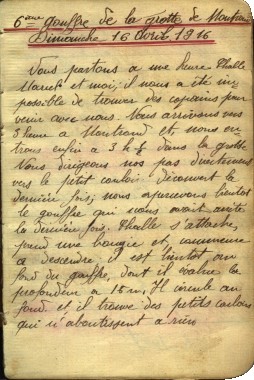 6ème gouffre de la grotte de Montrond
Dimanche 16 Avril 1916
Nous partons a une heure Thalle
Marck et moi; il nous a été im-
possible de trouver des copains pour
venir avec nous. Nous arrivons vers
3 heure a Montrond et nous en
trons enfin a 3 h ½ dans la grotte
Nous dirigeons nos pas directement
vers le petit couloir découvert la
dernière fois; nous apercevons bientôt
le gouffre qui nous avait arrêté
la dernière fois. Thaller s'attache,
prend une bougie et commence
a descendre; il est bientôt au
fond du gouffre, dont il évalue la
profondeur a 15 m. Il circule au
fond et il trouve des petits couloirs
qui n'aboutissent a rien